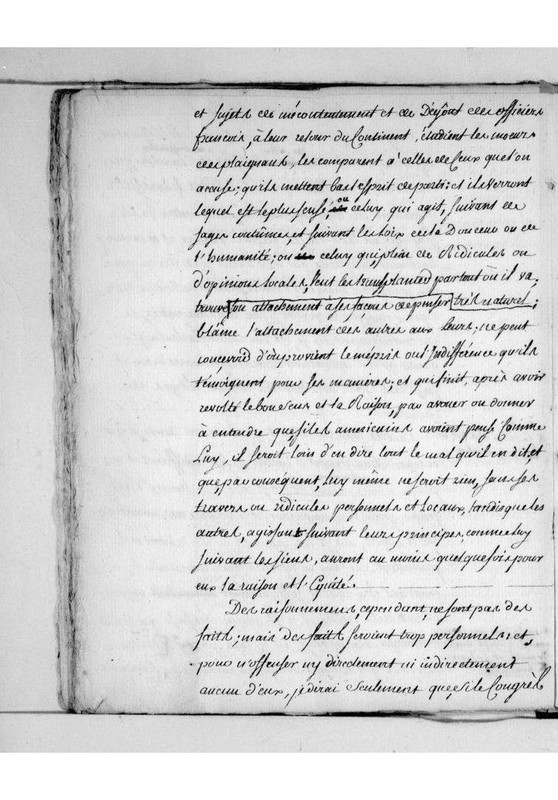 et Sujets de mécontentement et de Dégout des officiers
françois, à leur retour du Continent, étudient les moeurs
des plaignans, les comparent à celles de Ceux que l'on
accuse; qu'ils mettent bas l'esprit de parti: et ils verront
lequel est le plus sensé, ou celuy qui agit, Suivant de
sages coutumes, et suivant les Loix de la Douceur ou de
l'humanité; ou celuy qui, plein de Ridicules ou
d'opinions locales, veut les transplanter partout où il va,
trouve son attachement à ses façons de penser très naturel;
blâme l'attachement des autres aux leurs; ne peut
concevoir d'où provient le mépris ou l'Indifférence qu'ils
témoignent pour ses manières; et qui finit, après avoir
revolté le bon Sens et la Raison, par avouer ou donner
à entendre que, si les americains avoient pensé Comme
Luy, il seroit loin d'en dire tout le mal qu'il en dit, et
que, par conséquent, Luy même ne seroit rien, sans ses
travers ou ridicules personnels et Locaux, tandis que les
autres, agissant suivant leurs principes, comme luy
suivant les siens, auront au moins quelquefois pour
eux la raison et l'Equité.
Des raisonnemens, cependant, ne sont pas des
faits; mais des faits seroient trop personnels: et,
pour n'offenser ny directement ni indirectement
aucun d'eux, je dirai Seulement que, si le Congrès